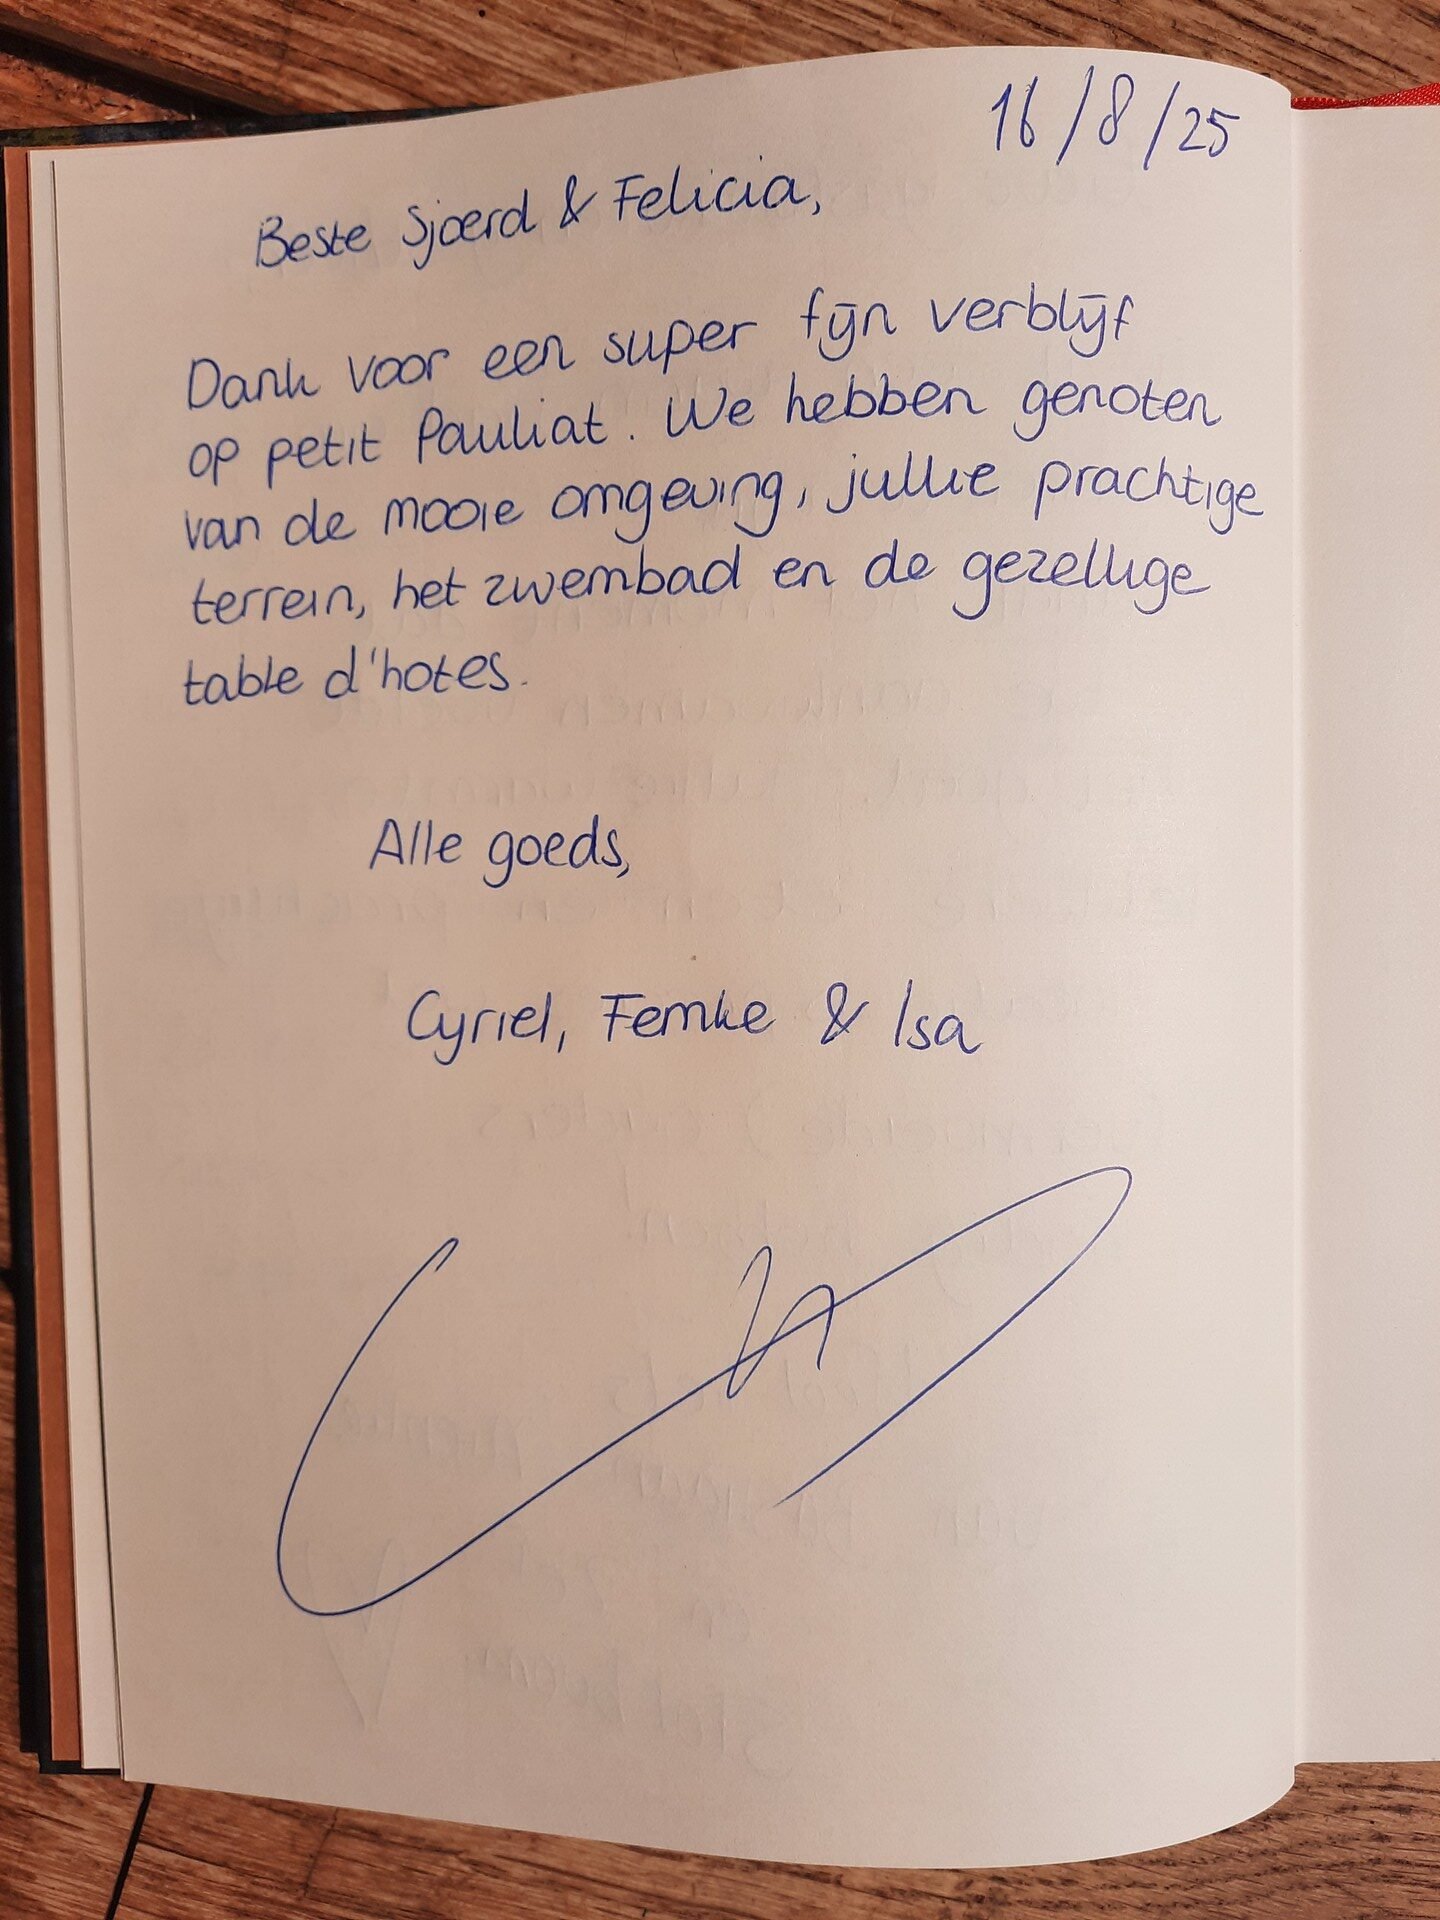 16/8/25
Beste Sjoerd & Felicia,
Dank voor een super fijn verblijf
op petit Pauliat. We hebben genoten
van de mooie omgeving, jullie prachtige
terrein, het zwembad en de gezellige
table d'hotes.
Alle goeds,
Cyriel, Femke & Isa